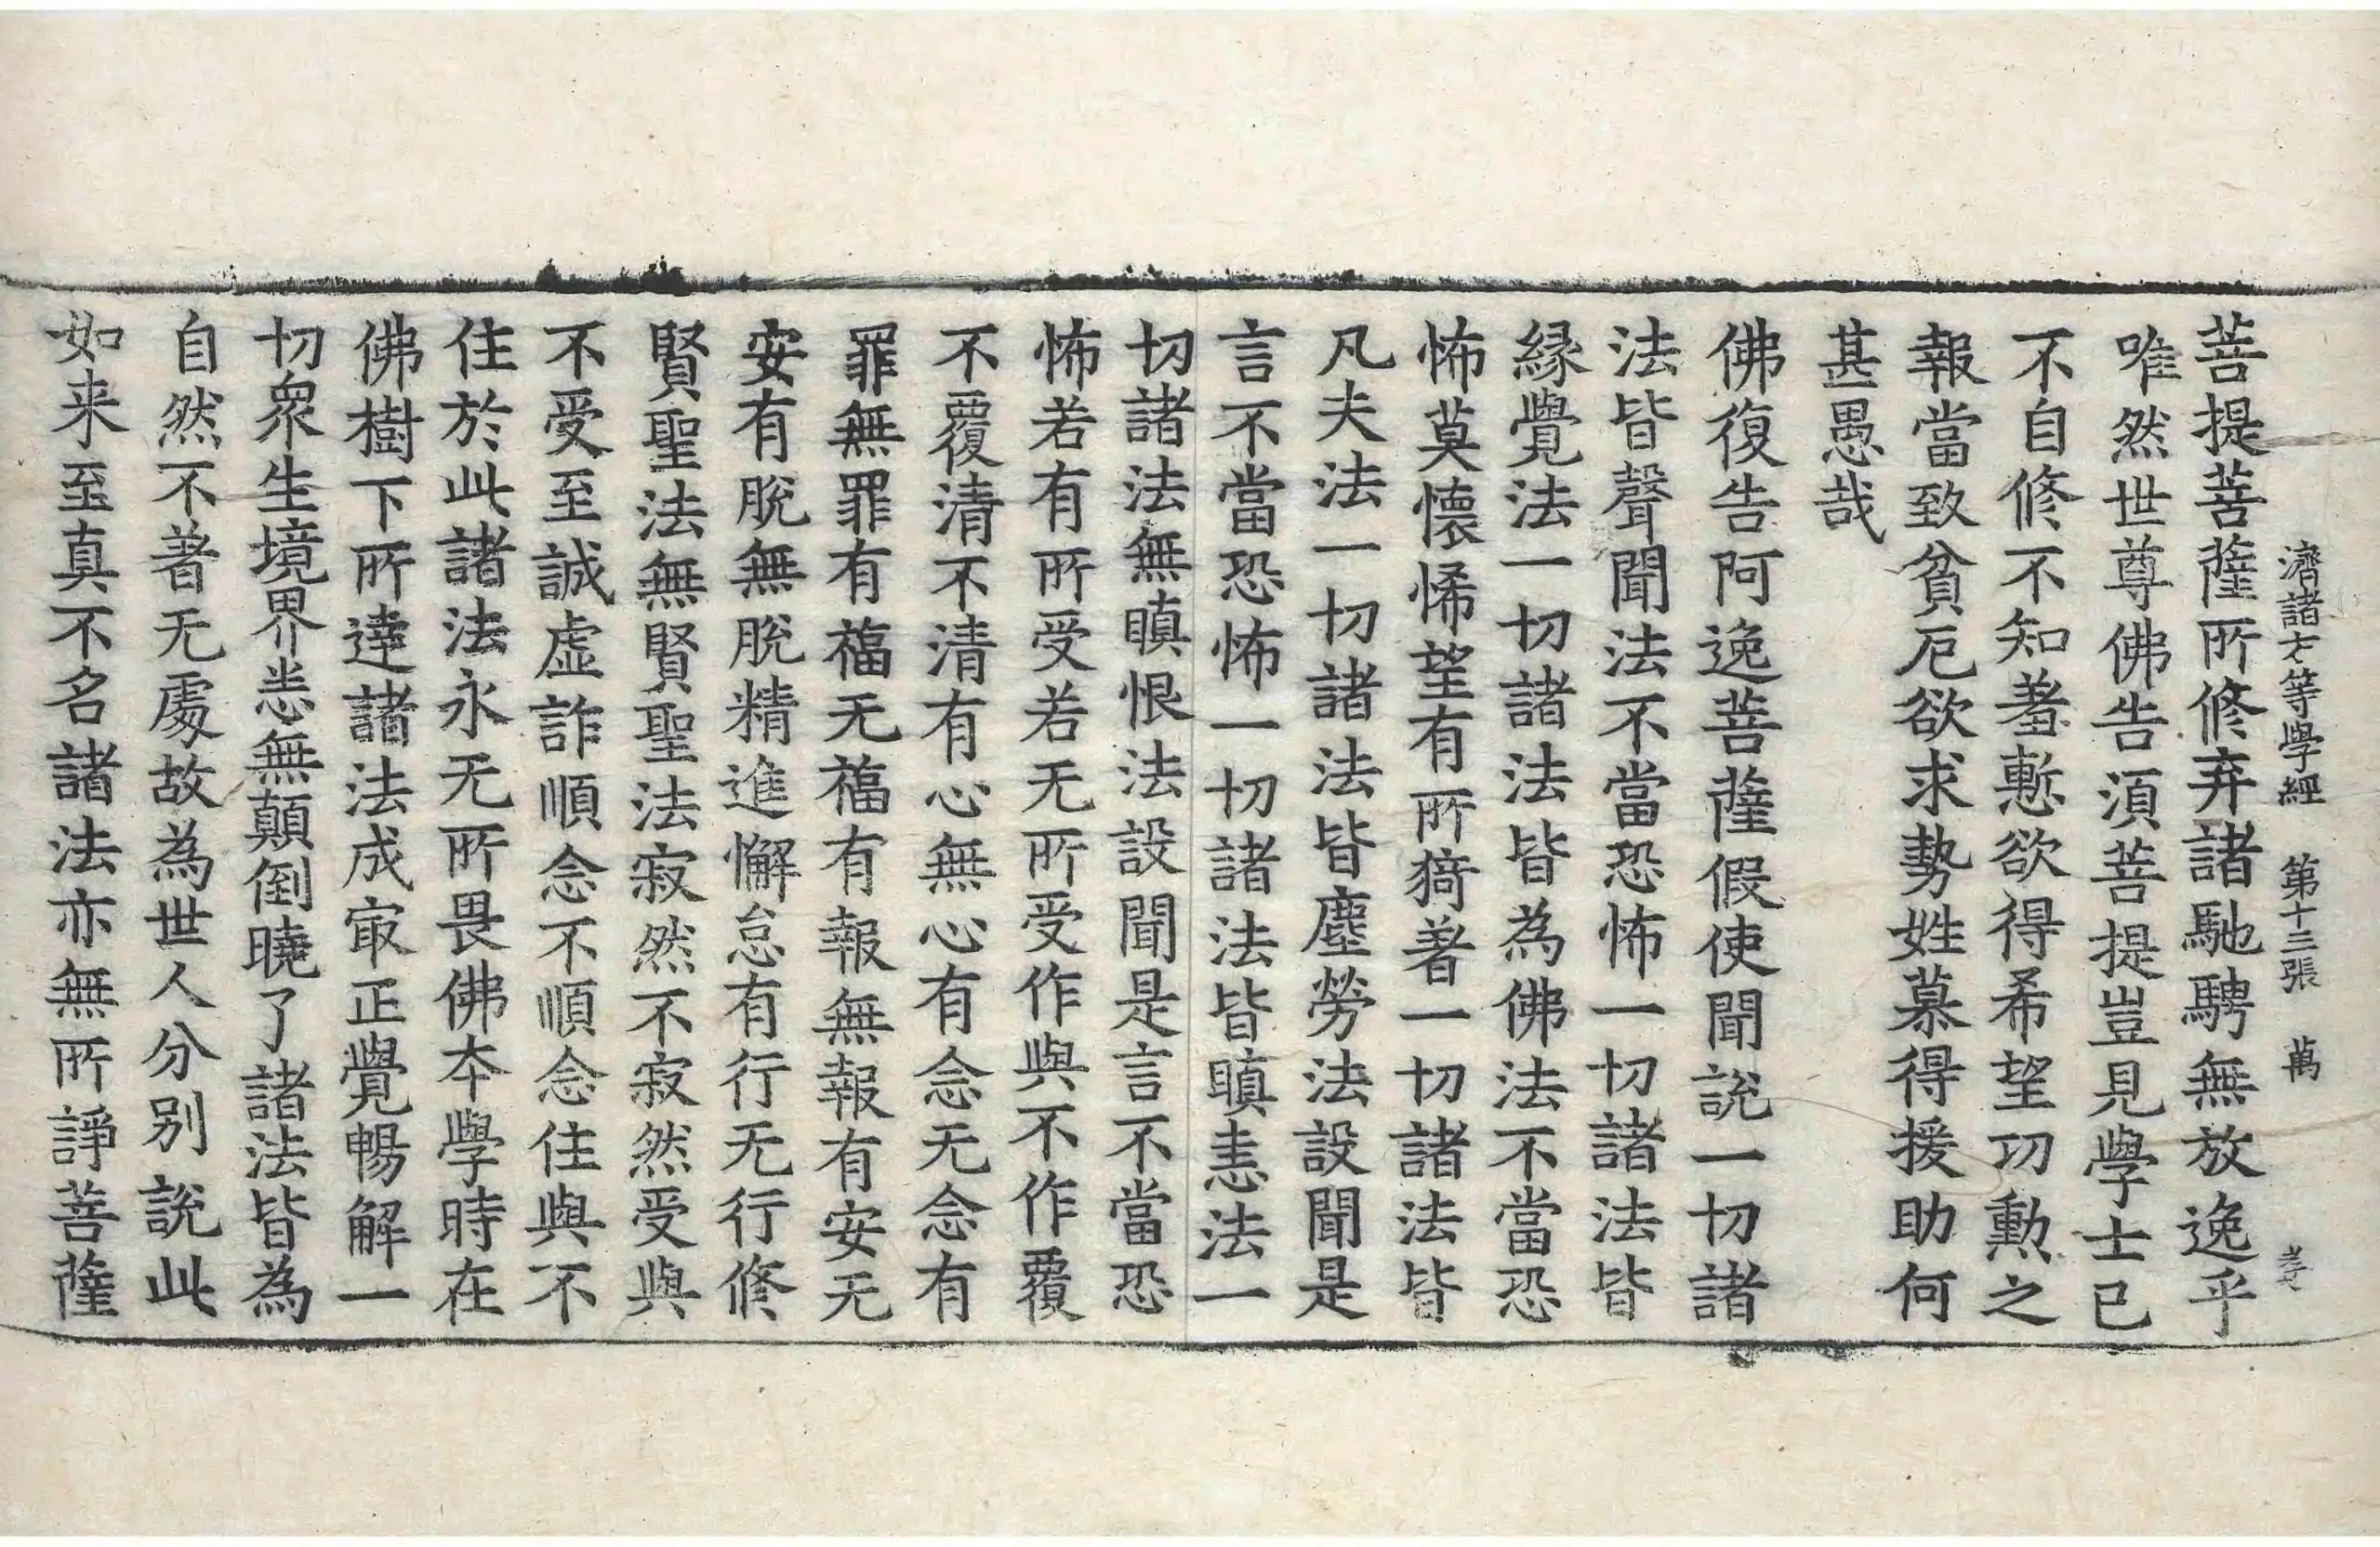 濟諸方等學經　第十三張　萬
菩提菩薩所修弃諸馳騁無放逸乎
唯然世尊佛告湏菩提豈見學士已
不自修不知羞慙欲得希望功勳之
報當致貧厄欲求勢姓慕得援助何
甚愚哉
佛復告阿逸菩薩假使聞說一切諸
法皆聲聞法不當恐怖一切諸法皆
縁覺法一切諸法皆為佛法不當恐
怖莫懷悕望有所猗著一切諸法皆
凡夫法一切諸法皆塵勞法設聞是
言不當恐怖一切諸法皆瞋恚法一
切諸法無瞋恨法設聞是言不當恐
怖若有所受若无所受作與不作覆
不覆清不清有心無心有念无念有
罪無罪有福无福有報無報有安无
安有脫無脫精進懈怠有行无行修
賢聖法無賢聖法寂然不寂然受與
不受至誠虛詐順念不順念住與不
住於此諸法永无所畏佛本學時在
佛樹下所達諸法成冣正覺暢解一
切衆生境界悉無顛倒曉了諸法皆為
自然不著无處故為世人分別說此
如来至真不名諸法亦無所諍菩薩